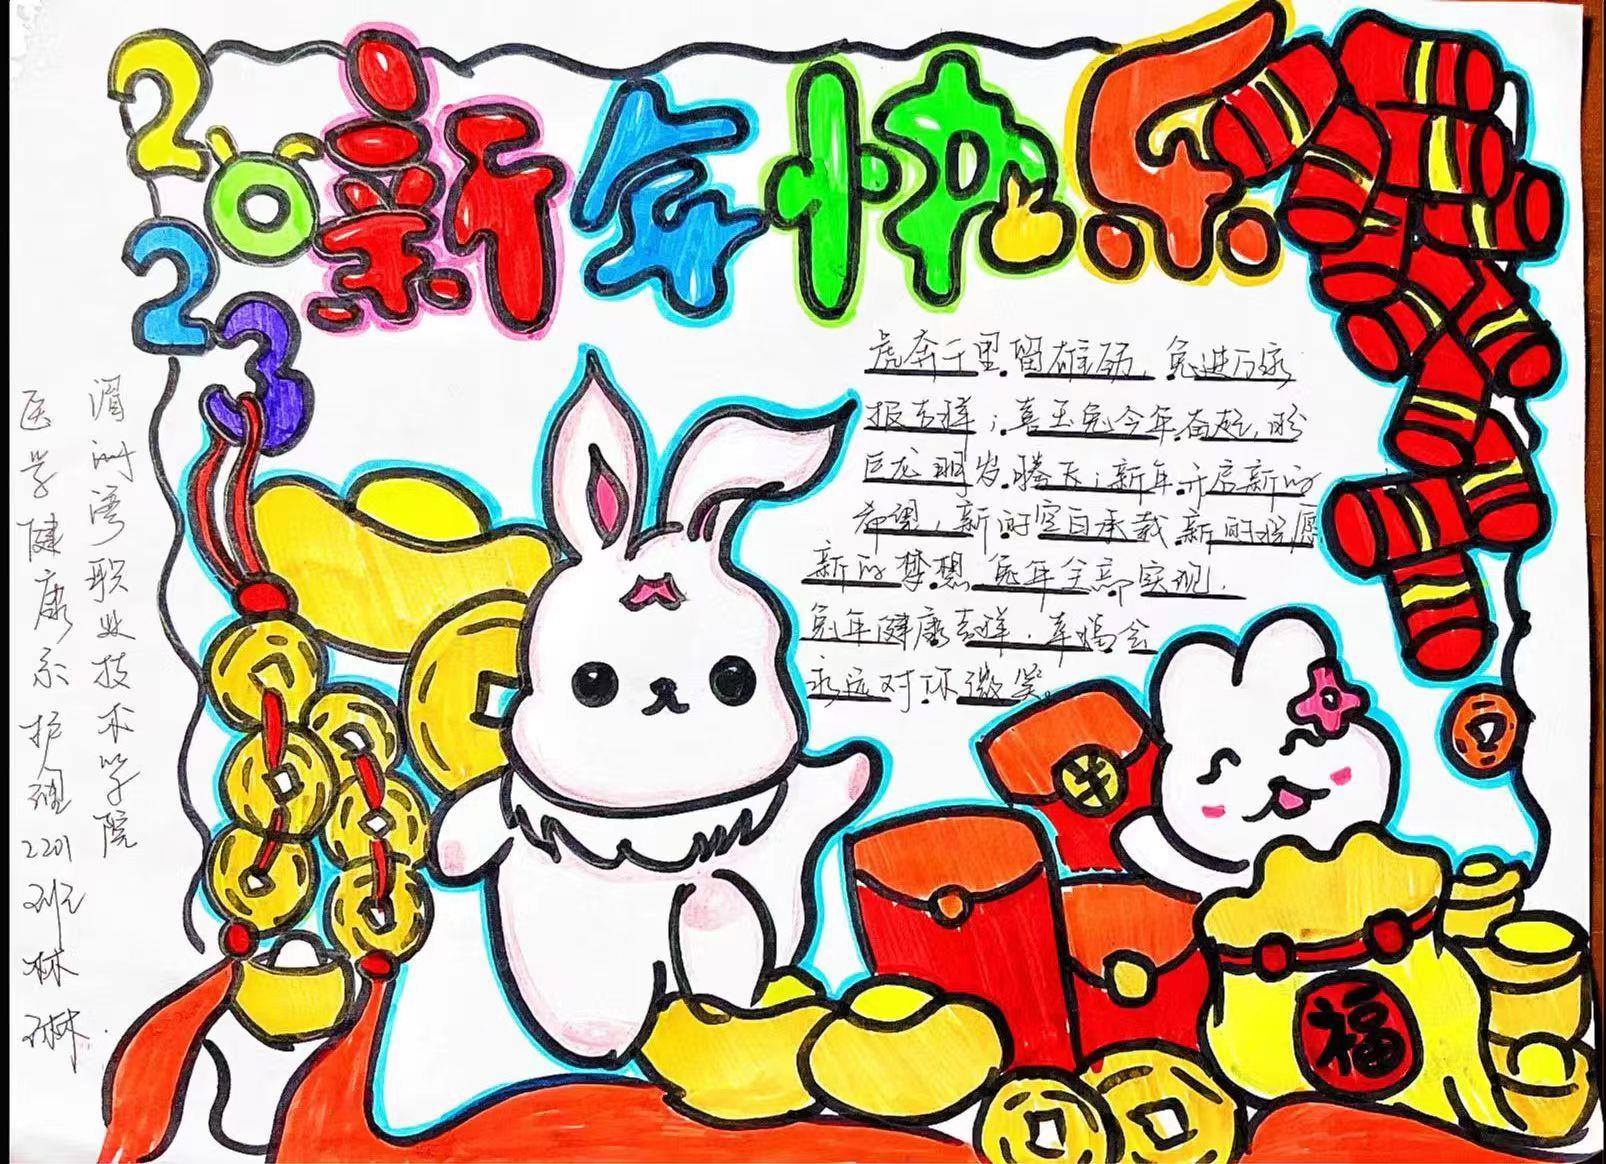 2023
新年快乐
虎奔千里留雄励，兔进万家
报吉祥；喜玉兔今年奋起，盼
巨龙明岁腾飞；新年开启新的
希望，新的空白承载新的祝愿
新的梦想 兔年全部实现.
兔年健康吉祥，幸福会
永远对你微笑。
湄洲湾职业技术学院
医学健康系护理2201 刘林琳.
牛
福